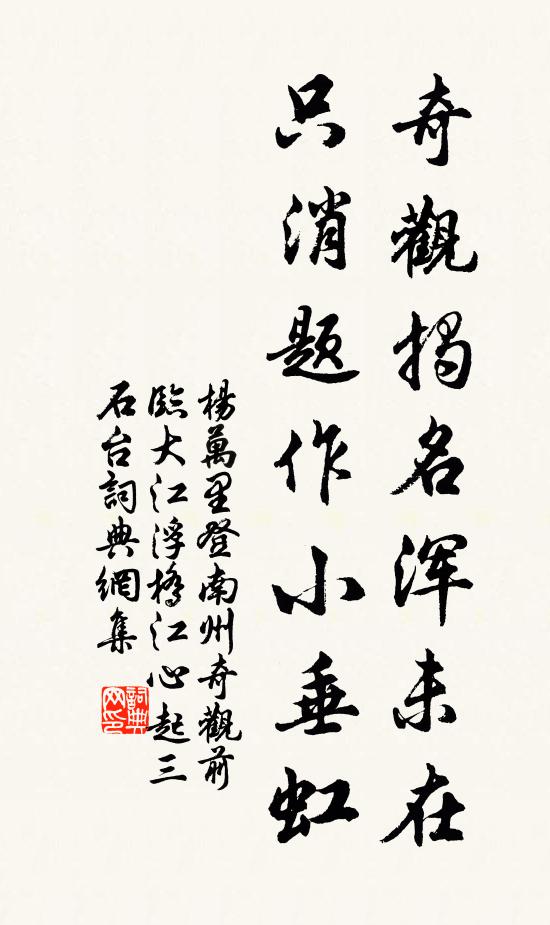 奇觀揭名渾未在
只消题作小垂虹
楊萬里登南州奇觀前
臨大江浮橋江心起三
石台詞典網集
詞典
网印